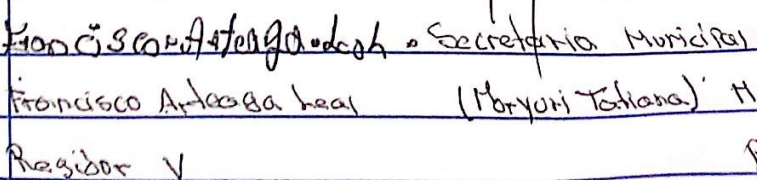 Francisco Arteaga Leal. Secretaria Municipal
Francisco Arteaga Leal (Maryuri Tatiana) M
Regidor V